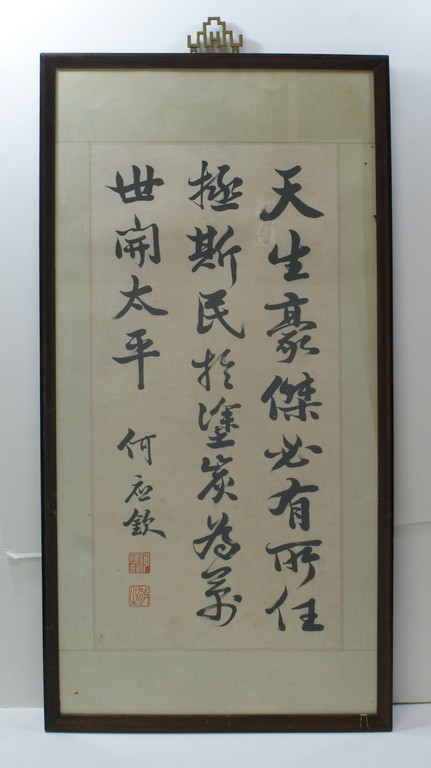 天生豪傑必有所任
極斯民於塗炭為萬
世開太平
何应欽